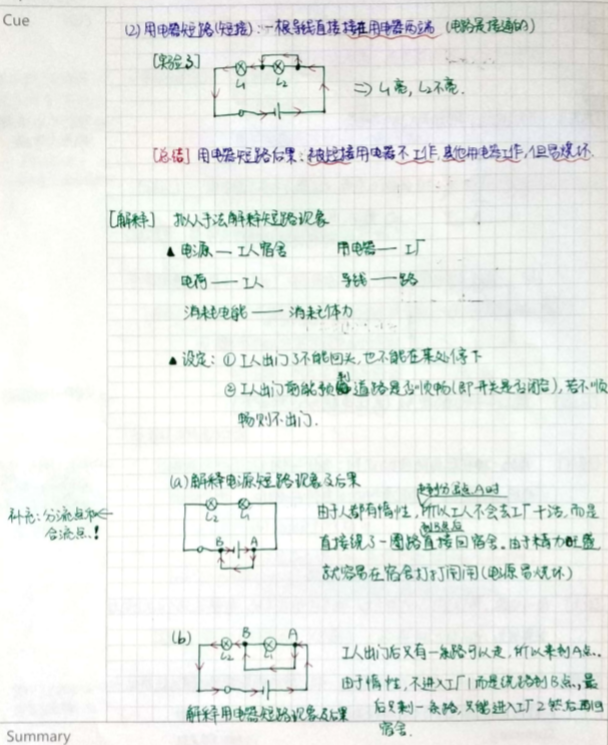 Cue
(2) 用电器短路(短接)：一根导线直接接在用电器两端 (电路是接通的)
[实验3]
L₁ L₂
⇒ L₁亮, L₂不亮.
[总结] 用电器短路后果：被短接用电器不工作, 其他用电器工作, 但易烧坏.
[解释] 拟人手法解释短路现象
▲ 电源 — 工人宿舍 用电器 — 工厂
电荷 — 工人 导线 — 路
消耗电能 — 消耗体力
▲ 设定：① 工人出门了不能回头, 也不能在某处停下
② 工人出门前能预判道路是否顺畅(即开关是否闭合), 若不顺
畅则不出门.
(a) 解释电源短路现象及后果
走到分流点A时
L₂ L₁
由于人都有惰性, 所以工人不会去工厂干活, 而是
补充：分流点和
合流点!
到B点后
B A
直接绕了一圈路直接回宿舍. 由于精力旺盛
就容易在宿舍打打闹闹(电源易烧坏)
(b)
B A
L₂ L₁
工人出门后只有一条路可以走, 所以来到A点.
由于惰性, 不进入工厂1而是绕路到B点, 最
后只剩一条路, 只能进入工厂2然后再回
宿舍.
解释用电器短路现象及后果
Summary